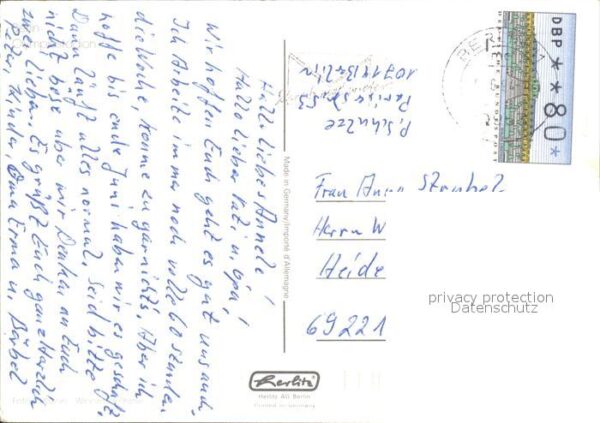 Hallo liebes Annele!
Hallo lieber Vati u. Opa,!
Wir hoffen Euch geht es gut uns auch.
Ich Arbeite immer noch volle 60 stunden
die Woche, komme zu garnichts. Aber ich
hoffe bis ende Juni haben wir es geschaft,
Dann läuft alles normal. Seid bitte
nicht böse über mir Denken an Euch
Lieben. Es grüßt Euch ganz Herzlich
Peter, Kinder, Oma Erma u. Bärbel
P. Schulze
10719 Berlin
Made in Germany/Importé d'Allemagne
DBP **80*
Frau Anna
Herrn W
Heide
69221
privacy protection
Datenschutz
Herlitz
Herlitz AG Berlin
Printed in Germany